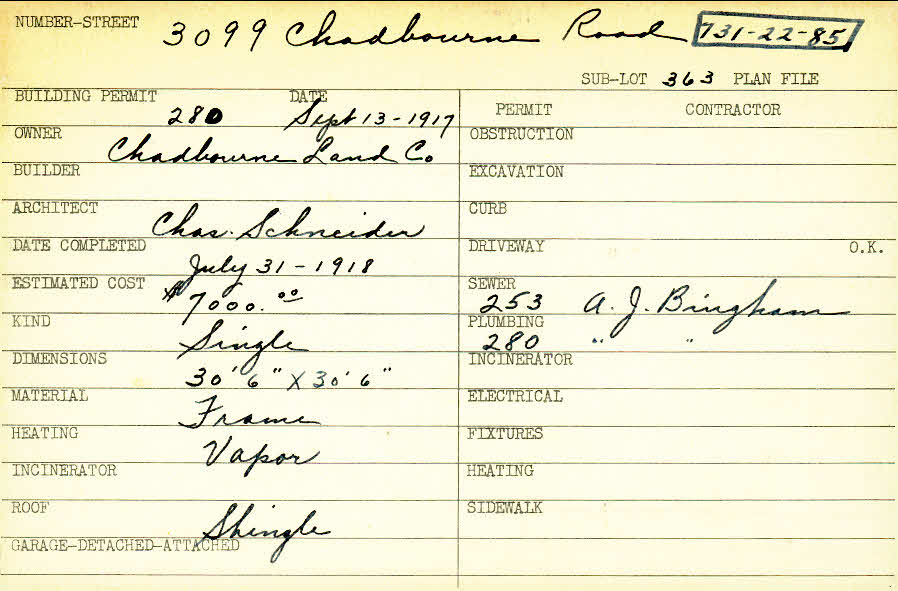 NUMBER-STREET 3099 Chadbourne Road 731-22-85
SUB-LOT 363 PLAN FILE
BUILDING PERMIT 280 DATE Sept 13-1917
PERMIT CONTRACTOR
OWNER Chadbourne Land Co
OBSTRUCTION
BUILDER
EXCAVATION
ARCHITECT Chas. Schneider
CURB
DATE COMPLETED July 31-1918
DRIVEWAY O.K.
ESTIMATED COST $7000.00
SEWER 253 A. J. Bingham
KIND Single
PLUMBING 280 " "
DIMENSIONS 30' 6" X 30' 6"
INCINERATOR
MATERIAL Frame
ELECTRICAL
HEATING Vapor
FIXTURES
INCINERATOR
HEATING
ROOF Shingle
SIDEWALK
GARAGE-DETACHED-ATTACHED